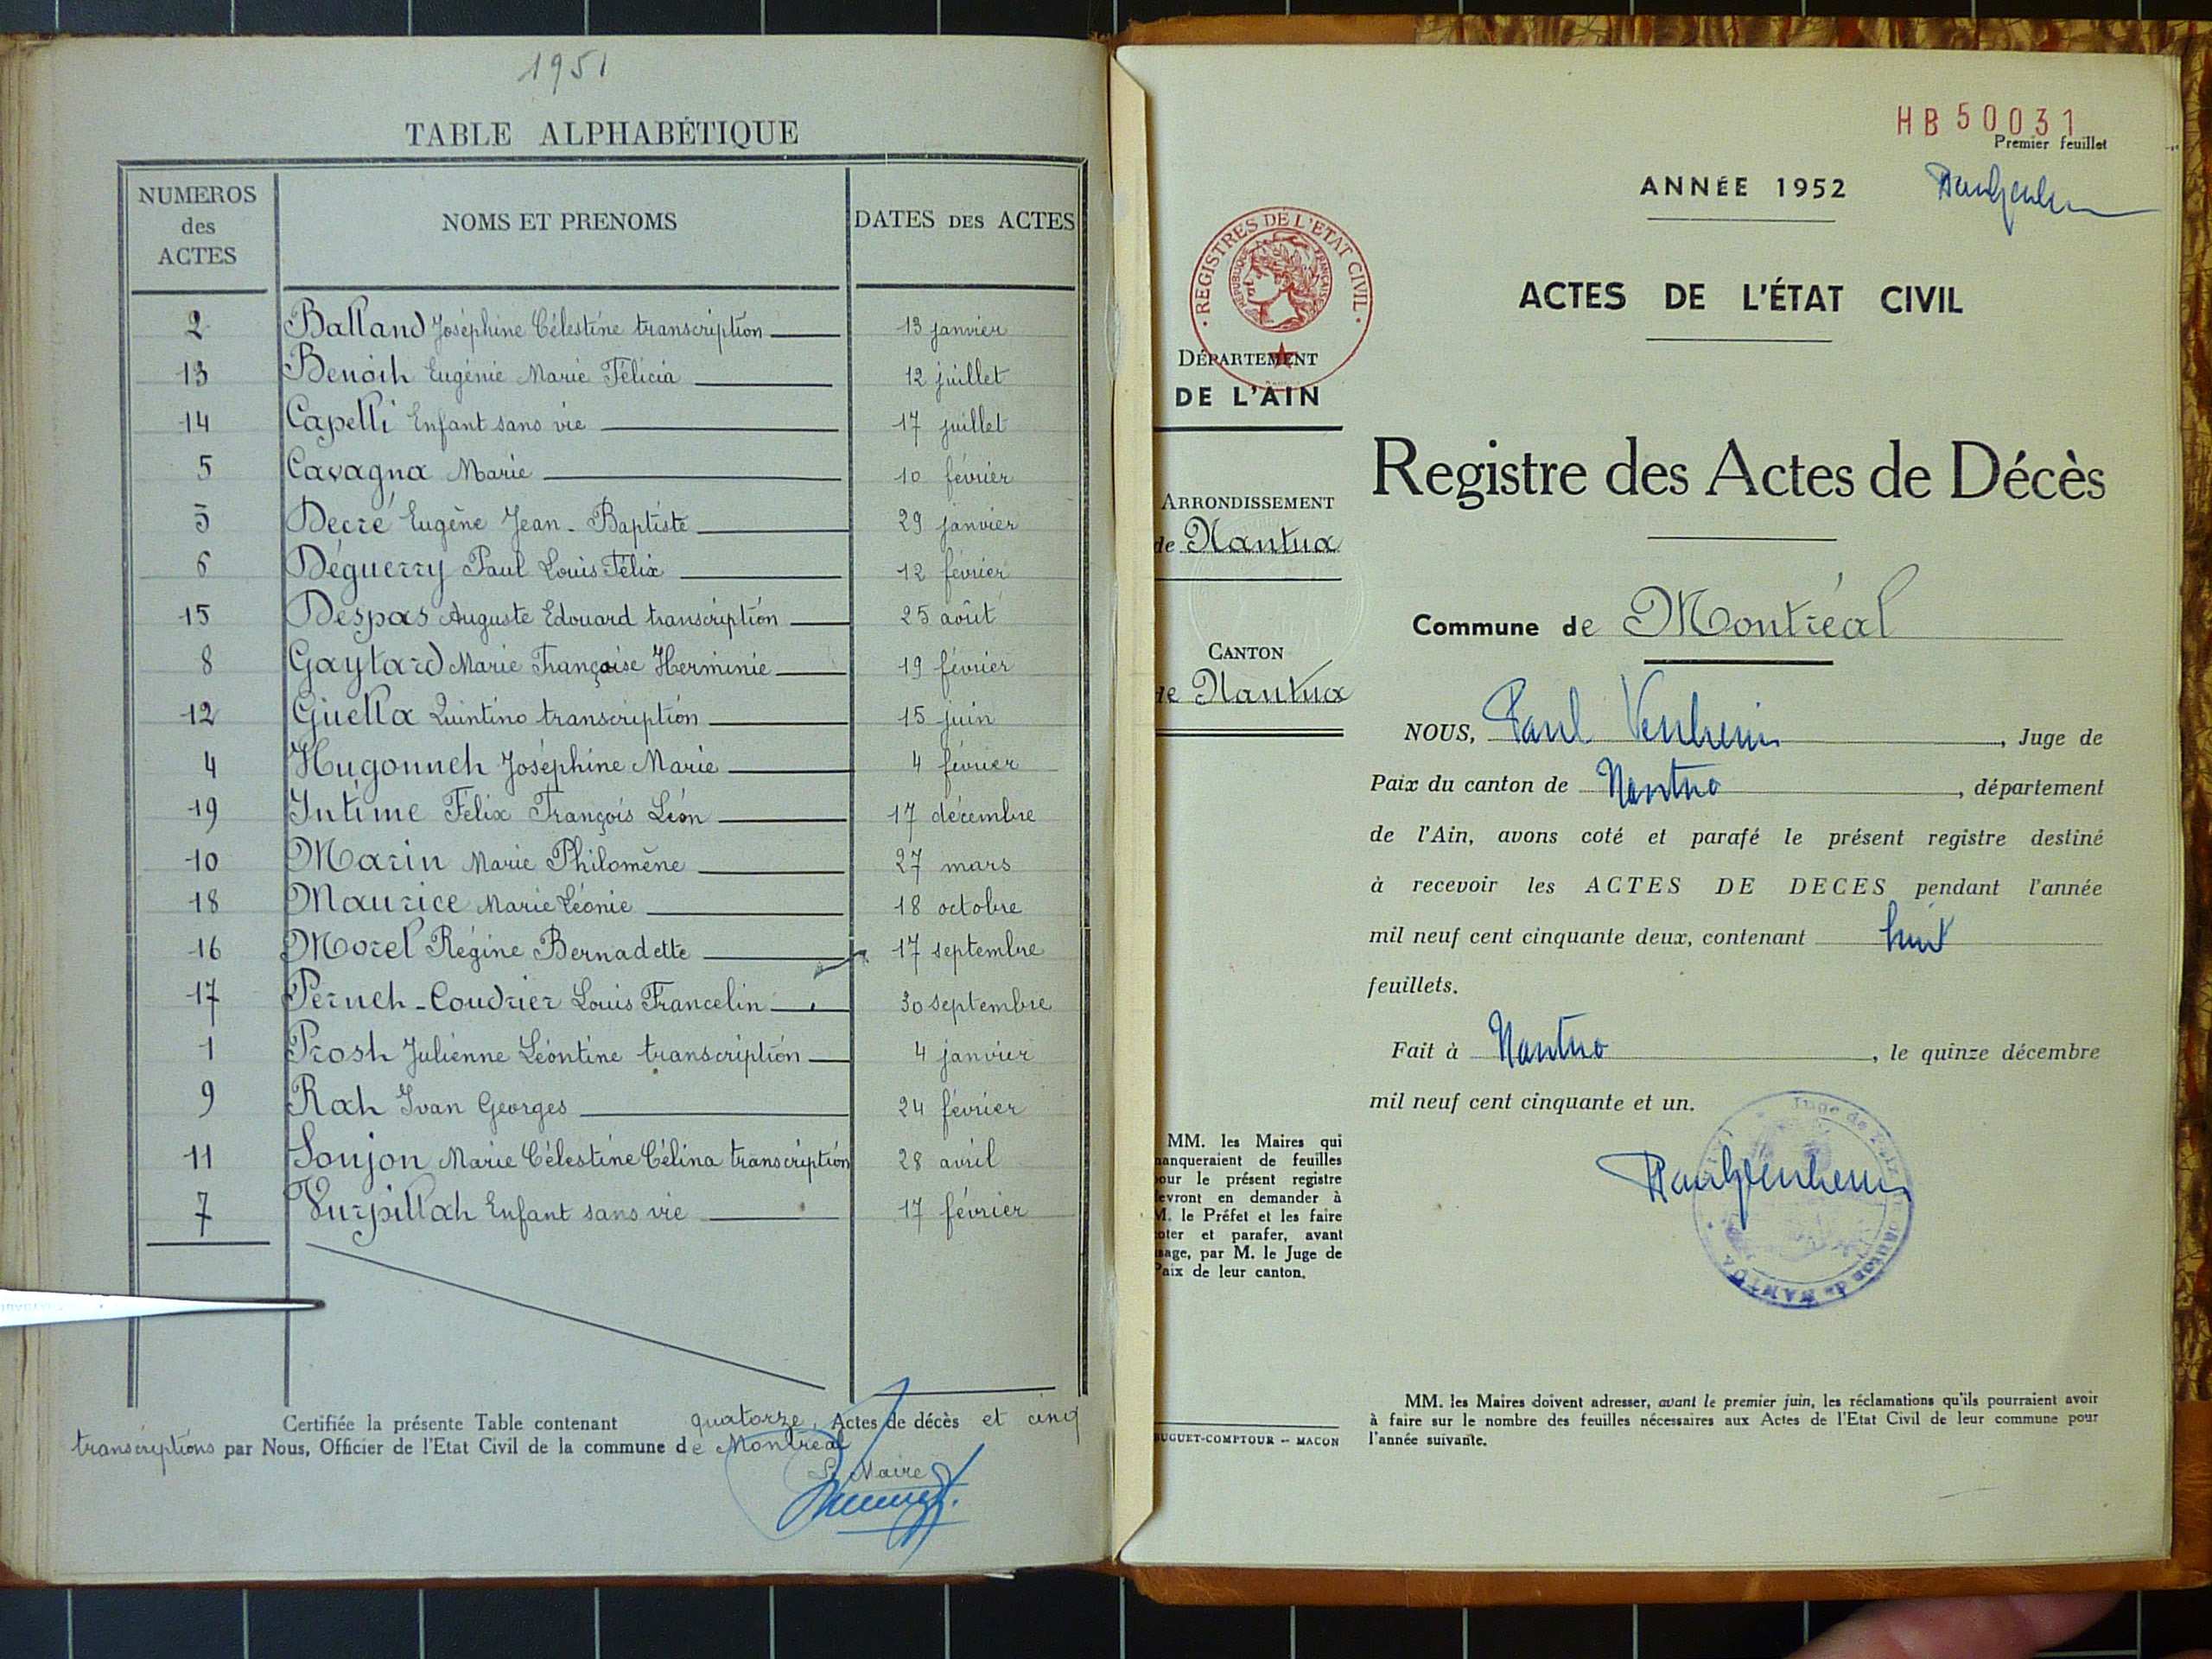 1951
TABLE ALPHABÉTIQUE
NUMEROS des ACTES NOMS ET PRENOMS DATES DES ACTES
2 Balland Joséphine Célestine transcription 13 janvier
13 Benoît Eugénie Marie Félicia 12 juillet
14 Capelli Enfant sans vie 17 juillet
5 Cavagna Marie 10 février
3 Decré Eugène Jean-Baptiste 29 janvier
6 Déguerry Paul Louis Félix 12 février
15 Despas Auguste Edouard transcription 25 août
8 Gaytard Marie Françoise Herminie 19 février
12 Guella Quintino transcription 15 juin
4 Hugonnet Joséphine Marie 4 février
19 Intime Félix François Léon 17 décembre
10 Marin Marie Philomène 27 mars
18 Maurice Marie Léonie 18 octobre
16 Morel Régine Bernadette 17 septembre
17 Pernet-Coudrier Louis Francelin 30 septembre
1 Prost Julienne Léontine transcription 4 janvier
9 Rat Ivan Georges 24 février
11 Soujon Marie Célestine Célina transcription 28 avril
7 Vurpillat Enfant sans vie 17 février
Certifiée la présente Table contenant quatorze Actes de décès et cinq
transcriptions par Nous, Officier de l'Etat Civil de la commune de Montréal
Le Maire
HB50031
Premier feuillet
ANNÉE 1952
ACTES DE L'ÉTAT CIVIL
REGISTRES DE L'ETAT CIVIL
REPUBLIQUE FRANÇAISE
DÉPARTEMENT
DE L'AIN
Registre des Actes de Décès
ARRONDISSEMENT
de Nantua
Commune de Montréal
CANTON
de Nantua
NOUS, Paul , Juge de
Paix du canton de Nantua, département
de l'Ain, avons coté et parafé le présent registre destiné
à recevoir les ACTES DE DECES pendant l'année
mil neuf cent cinquante deux, contenant huit
feuillets.
Fait à Nantua, le quinze décembre
mil neuf cent cinquante et un.
Juge de Paix canton de NANTUA
MM. les Maires qui
manqueraient de feuilles
pour le présent registre
devront en demander à
M. le Préfet et les faire
coter et parafer, avant
usage, par M. le Juge de
Paix de leur canton.
MM. les Maires doivent adresser, avant le premier juin, les réclamations qu'ils pourraient avoir
à faire sur le nombre des feuilles nécessaires aux Actes de l'Etat Civil de leur commune pour
l'année suivante.
BUGUET-COMPTOUR -- MACON